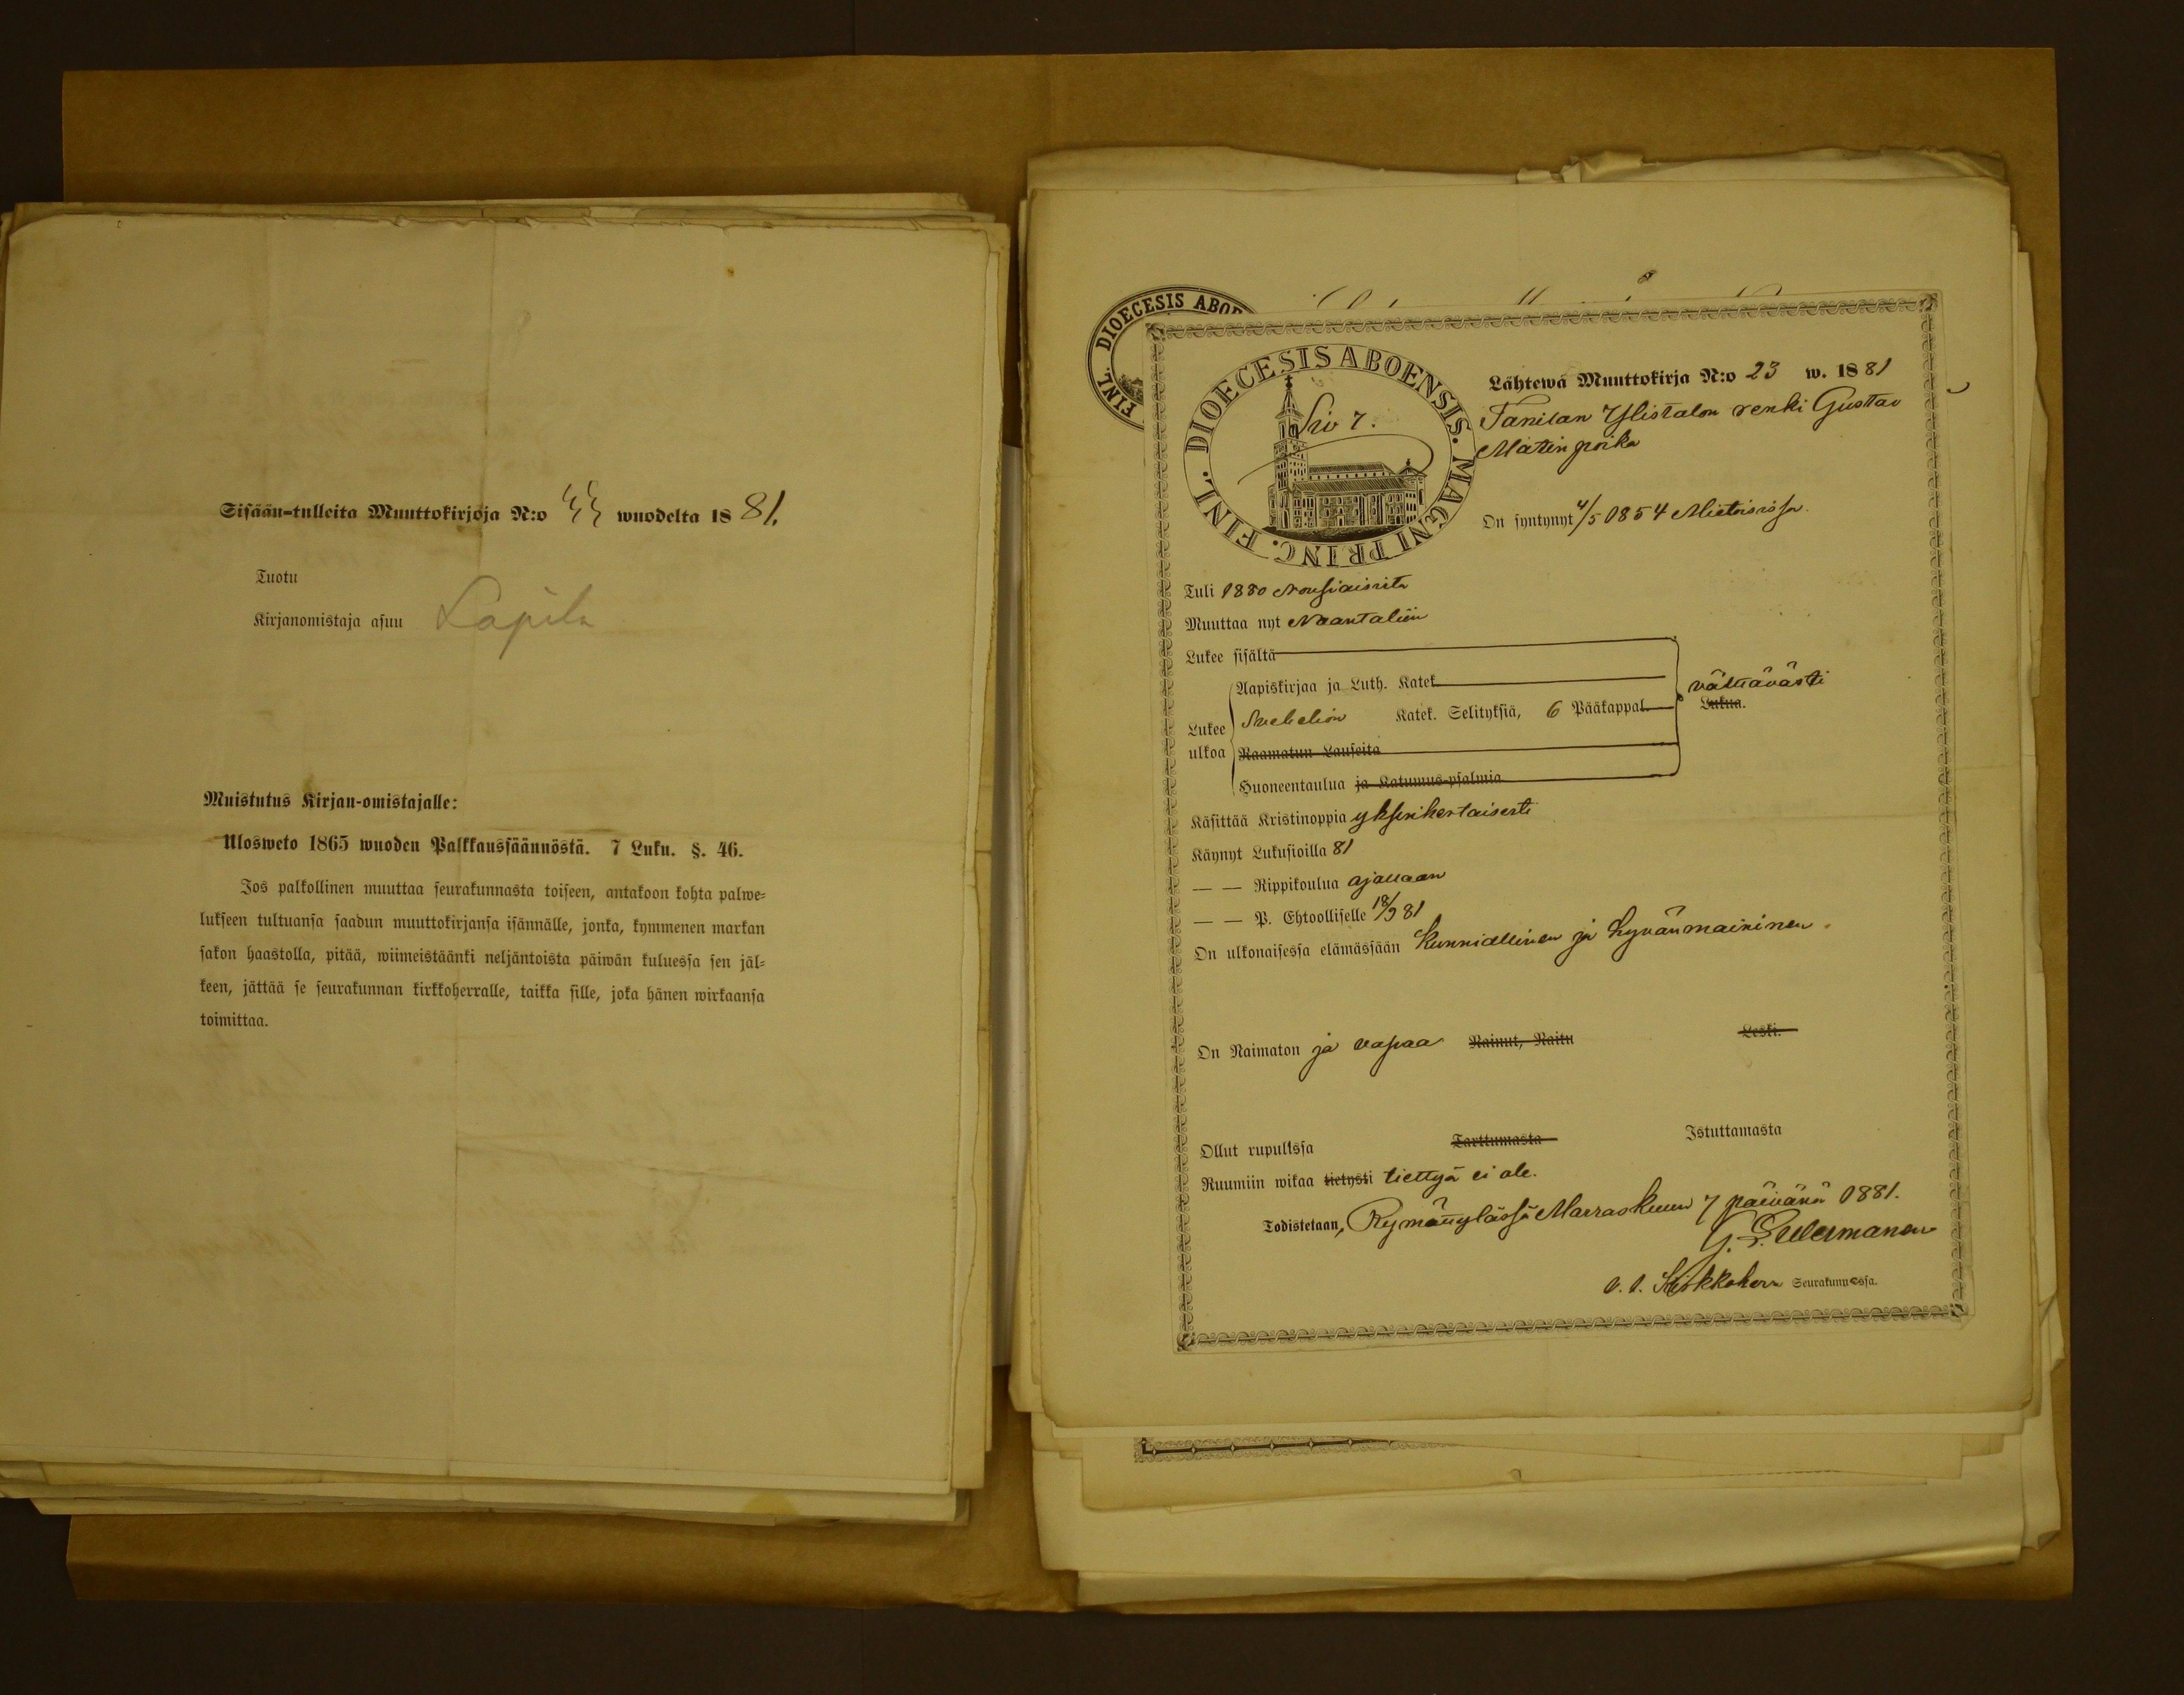 Sisään-tulleita Muuttokirjoja N:o 44 wuodelta 1881.
Tuotu
Kirjanomistaja asuu Lapila
Muistutus Kirjan-omistajalle:
Ulosweto 1865 wuoden Palkkaussäännöstä. 7 Luku. §. 46.
Jos palkollinen muuttaa seurakunnasta toiseen, antakoon kohta palwe-
lukseen tultuansa saadun muuttokirjansa isännälle, jonka, kymmenen markan
sakon haastolla, pitää, wiimeistäänki neljäntoista päiwän kuluessa sen jäl-
keen, jättää se seurakunnan kirkkoherralle, taikka sille, joka hänen wirkaansa
toimittaa.
FINL. DIOECESIS ABOE
DIOECESIS ABOENSIS. MAGNI PRINC. FINL.
Siv 7.
Lähtewä Muuttokirja N:o 23 w. 1881
Tanilan Ylistalon renki Gustav
Matin poika
On syntynyt 4/5 1854 Mietoisissa.
Tuli 1880 Nousiaisista
Muuttaa nyt Naantaliin
Lukee sisältä
Aapiskirjaa ja Luth. Katek.
välttävästi
Lukee Svebelion Katek. Selityksiä, 6 Pääkappal. Lukua.
ulkoa Raamatun Lauseita
Huoneentaulua ja Katumus-psalmia
Käsittää Kristinoppia yksinkertaisesti
Käynyt Lukusioilla 81
— — Rippikoulua ajallaan
— — P. Ehtoolliselle 18/9 81
On ulkonaisessa elämässään kunniallinen ja hyvänmaininen.
On Naimaton ja vapaa Nainut, Naitu Leski.
Ollut rupulissa Tarttumasta Istuttamasta
Ruumiin wikaa tietysti tiettyä ei ole.
Todistetaan, Rymättylässä Marraskuun 7 päivänä 1881.
v. t. Kirkkoherra Seurakunnessa.